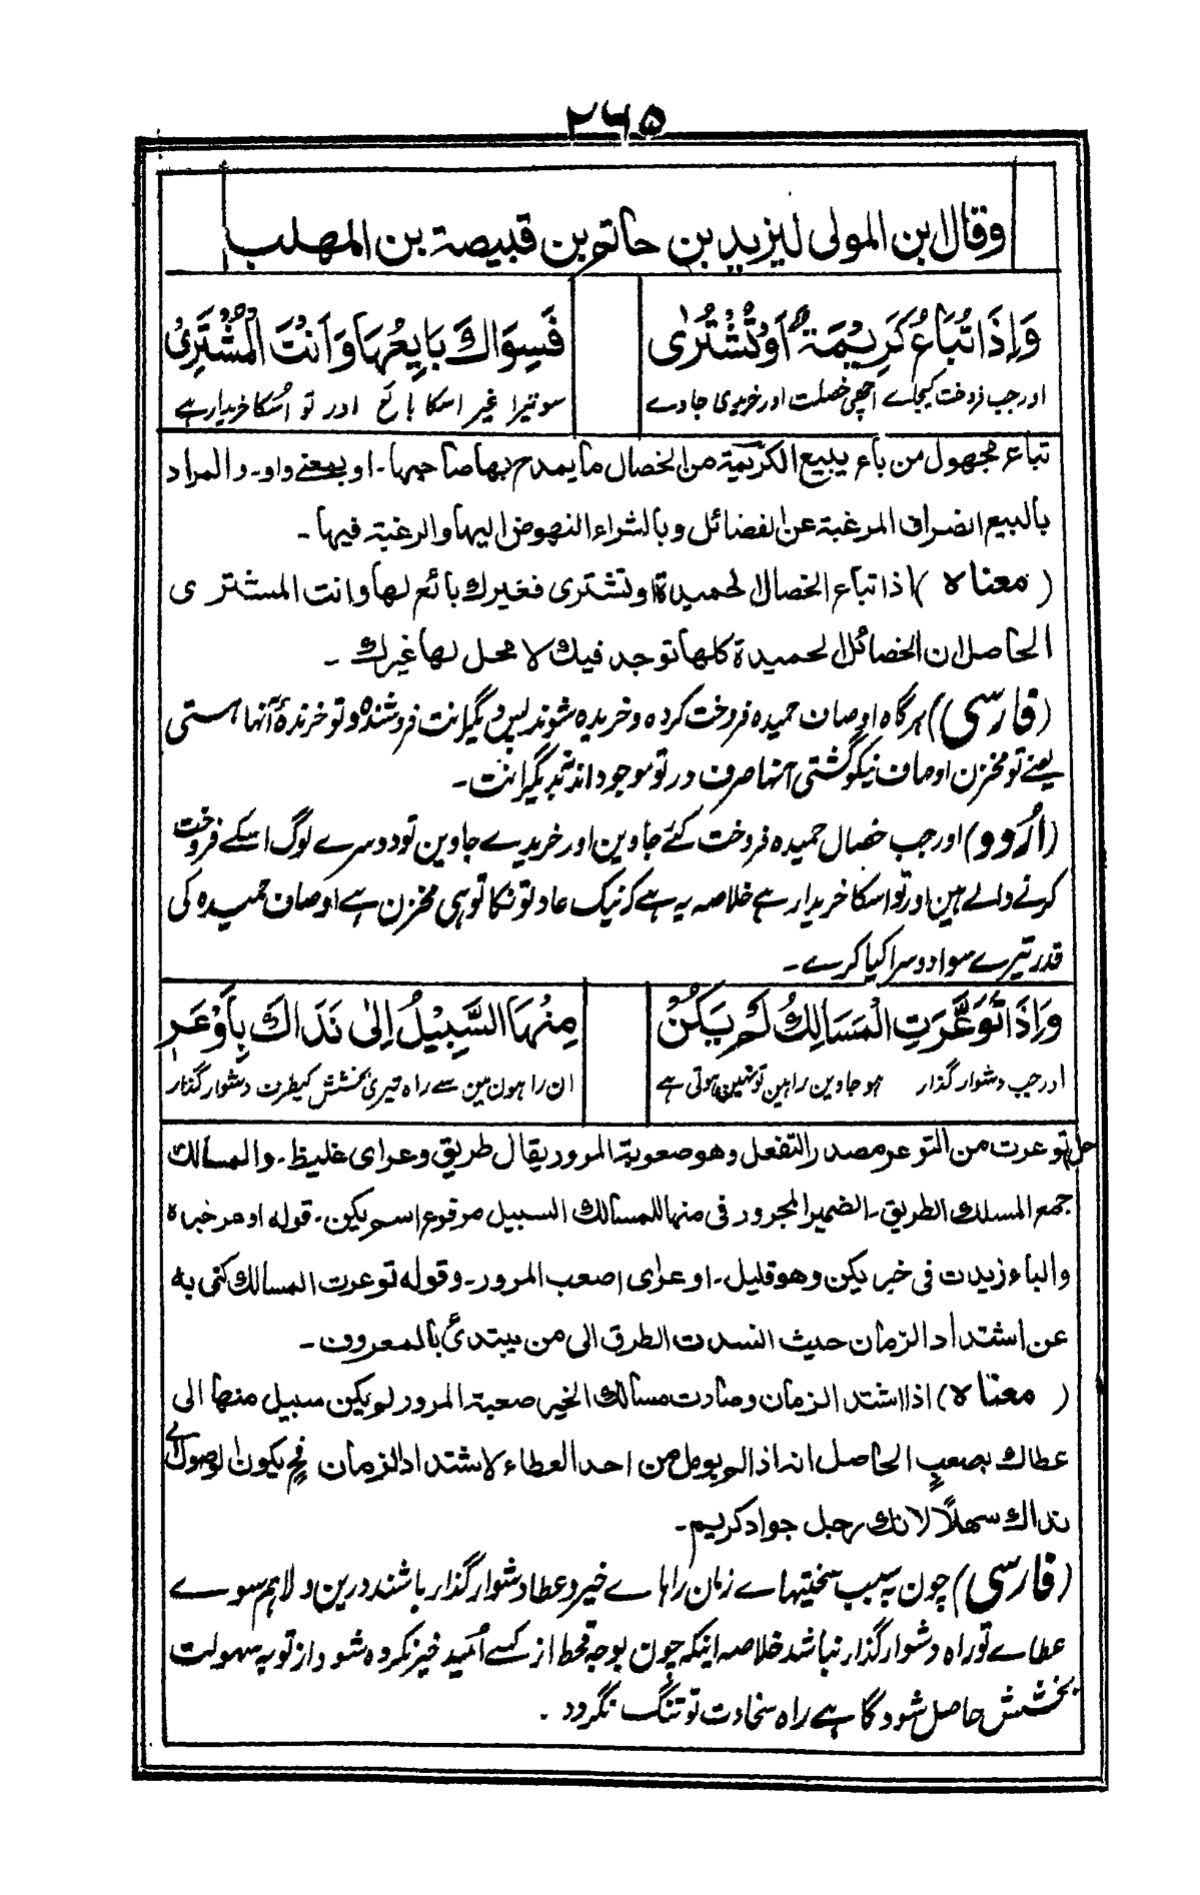 ۲۶۵
وقال بن المولى ليزيد بن حاتم بن قبيصة بن المهلب
وَاِذَا تُبَاعُ كَرِيْمَةٌ اَوْ تُشْتَرٰى
فَسِوَاكَ بَايِعُهَا وَاَنْتَ الْمُشْتَرِىْ
اور جب فروخت کیجائے اچھی خصلت اور خریدی جاوے
سو تیرا غیر اسکا بائع اور تو اُسکا خریدار ہے
تباع مجهول من باع يبيع الكريمة من الخصال ما يمدح بها صاحبها۔ او بمعنے واو۔ والمراد
بالبيع انصراف المرغبة عن الفضائل وبالشراء النهوض اليها والرغبة فيها۔
(معناه) اذا تباع الخصال الحميدة او تشترى فغيرك بائع لها وانت المشترى
الحاصل ان الخصائل الحميدة كلها توجد فيك لا محل لها غيرك۔
(فارسی) ہرگاہ اوصاف حمیدہ فروخت کردہ و خریدہ شوند پس دیگرانت فروشندہ و تو خرندۂ آنہا ہستی
یعنے تو مخزن اوصاف نیکو گشتی آنہا صرف در تو موجود اند نہ دیگرانت۔
(اُردو) اور جب خصال حمیدہ فروخت کئے جاوین اور خریدے جاوین تو دوسرے لوگ اسکے فروخت
کرنے والے ہین اور تو اسکا خریدار ہے خلاصہ یہ ہے کہ نیک عادتونکا تو ہی مخزن ہے اوصاف حمیدہ کی
قدر تیرے سوا دوسرا کیا کرے۔
وَاِذَا تَوَعَّرَتِ الْمَسَالِكُ لَمْ يَكُنْ
مِنْهَا السَّبِيْلُ اِلٰى نَدَاكَ بِاَوْعَرٖ
اور جب دشوار گذار ہو جاوین راہین تو نہین ہوتی ہے
ان راہون مین سے راہ تیری بخشش کیطرف دشوار گذار
حل توعرت من التوعر مصدر التفعل وهو صعوبة المرور يقال طريق وعر اى غليظ۔ والمسالك
جمع المسلك الطريق۔ الضمير المجرور فى منها للمسالك السبيل مرفوع اسم يكن۔ قوله اوعر خبره
والباء زيدت فى خبر يكن وهو قليل۔ اوعر اى اصعب المرور۔ وقوله توعرت المسالك كنى به
عن اشتداد الزمان حيث انسدت الطرق الى من يبتدئ بالمعروف۔
(معناه) اذا اشتد الزمان وصارت مسالك الخير صعبة المرور لم يكن سبيل منها الى
عطاك بصعبٍ الحاصل انه اذا لم يومل من احد العطاء لاشتداد الزمان فح يكون الوصول الى
نداك سهلًا لانك رجل جواد كريم۔
(فارسی) چون بہ سبب سختیہاے زمان راہاے خیر و عطا دشوار گذار باشند درین ولا ہم سوے
عطاے تو راہ دشوار گذار نباشد خلاصہ اینکہ چون بوجہ قحط از کسے اُمید خیز نکردہ شود از تو بہ سہولت
بخشش حاصل شود گاہے راہ سخاوت تو تنگ نگردد۔